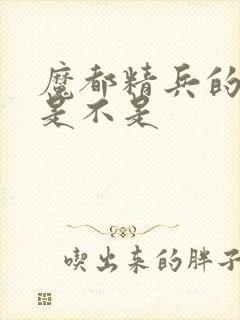 魔都精兵的
是不是
喫出来的胖子